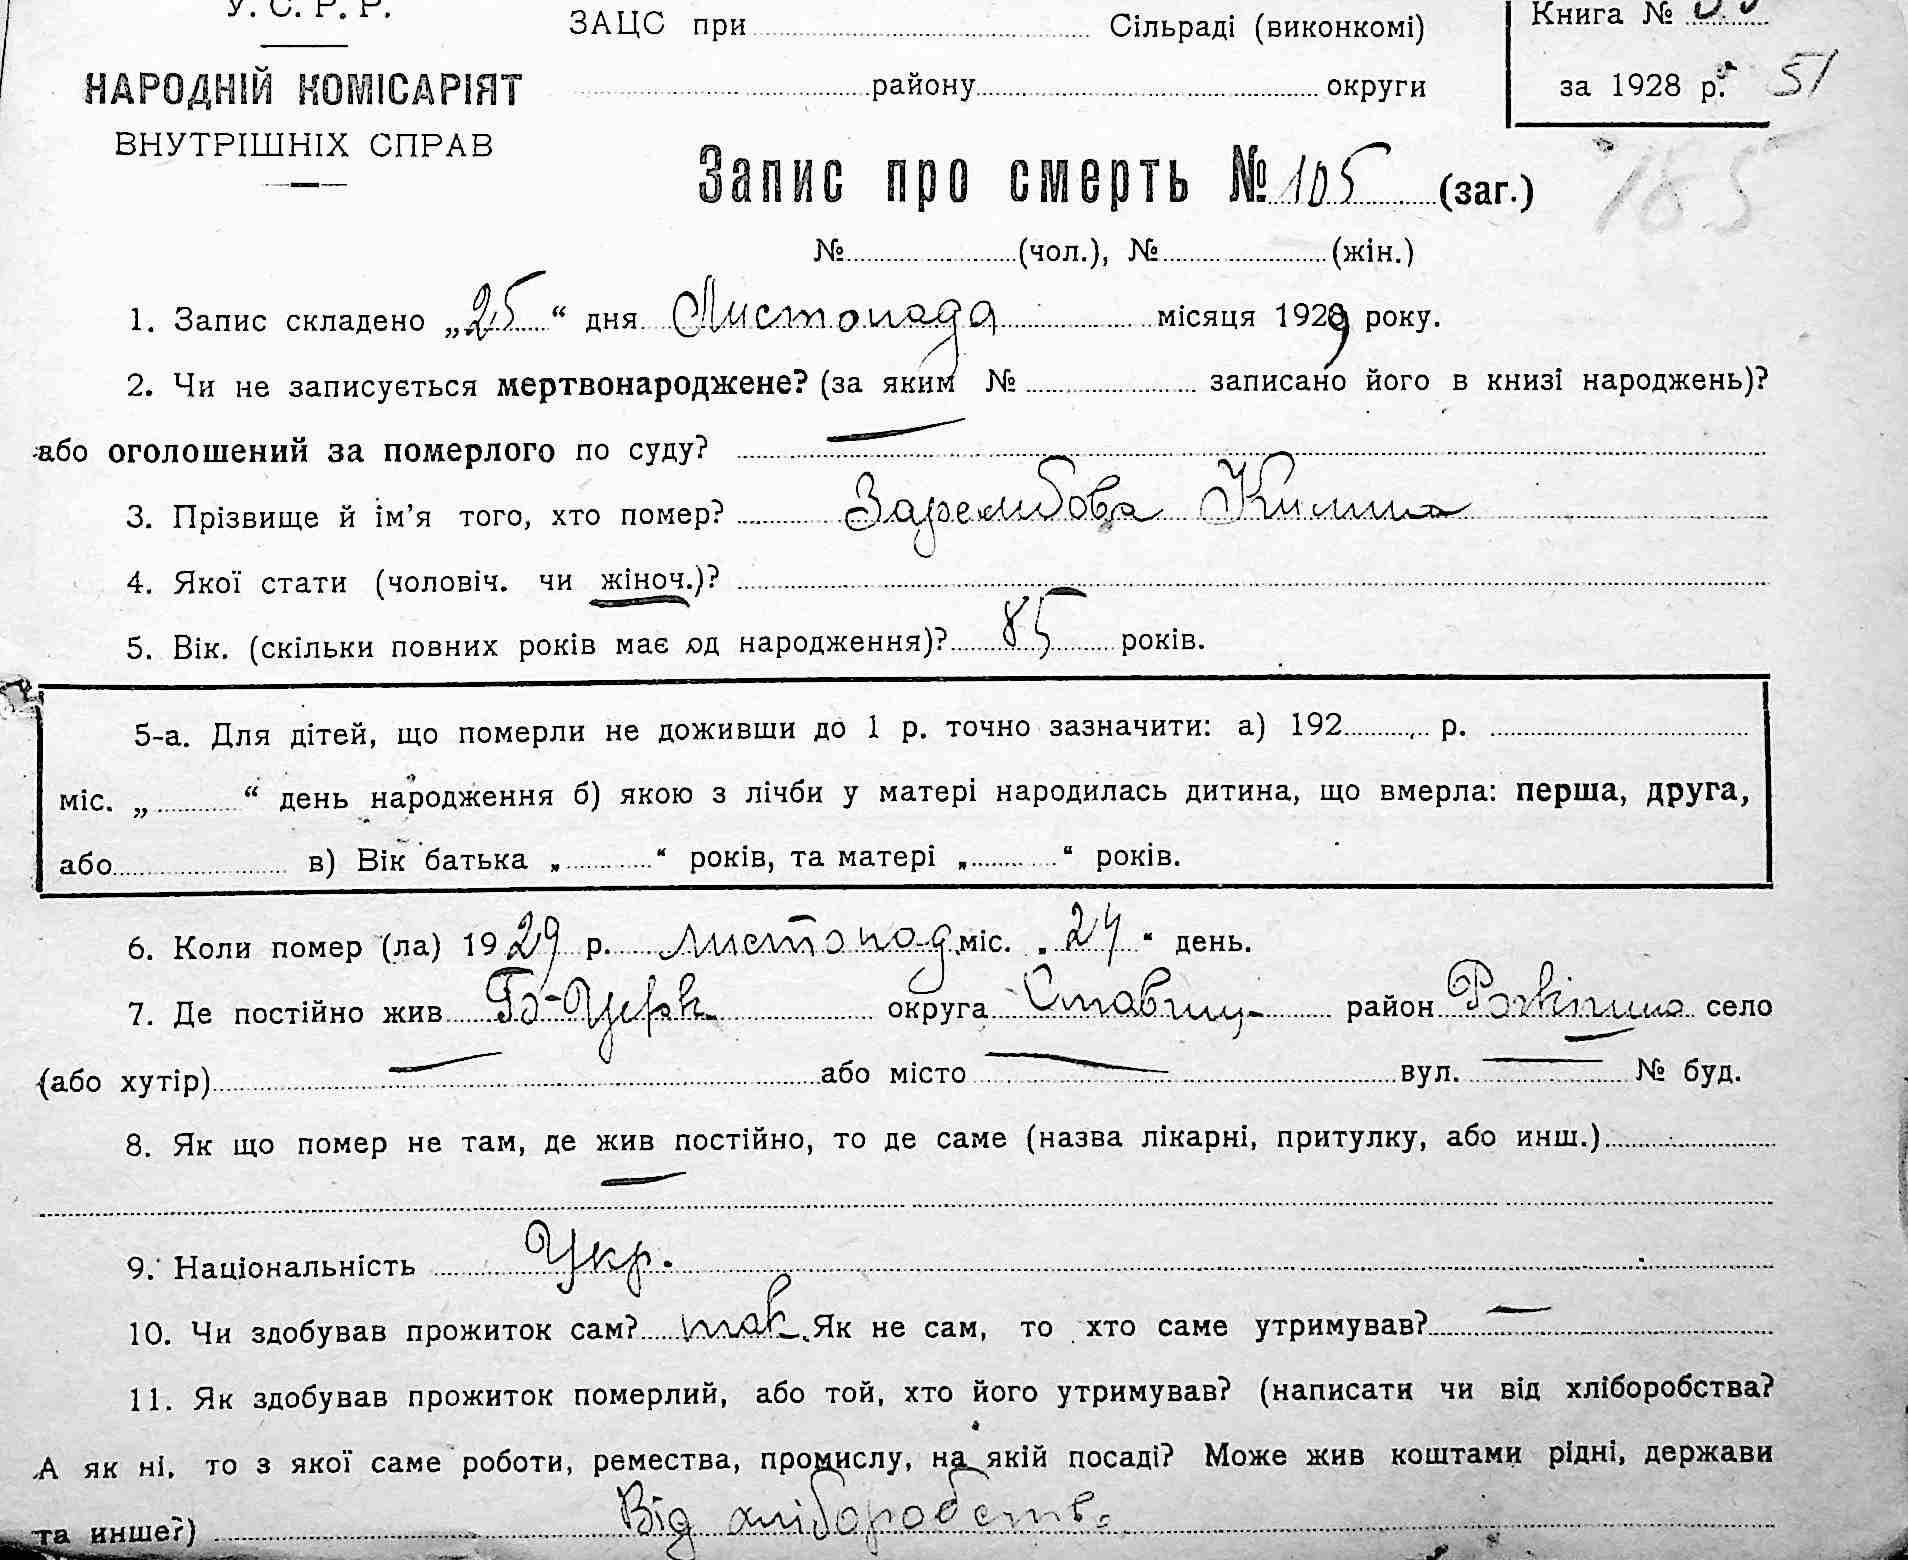 У. С. Р. Р.
НАРОДНІЙ КОМІСАРІЯТ
ВНУТРІШНІХ СПРАВ
ЗАЦС при Сільраді (виконкомі)
району округи
Книга №
за 1928 р. 51
Запис про смерть № 105 (заг.)
165
№ (чол.), № (жін.)
1. Запис складено „25“ дня Листопада місяця 1929 року.
2. Чи не записується мертвонароджене? (за яким № записано його в книзі народжень)?
або оголошений за померлого по суду? —
3. Прізвище й ім’я того, хто помер? Зарембова Килина
4. Якої стати (чоловіч. чи жіноч.)?
5. Вік. (скільки повних років має од народження)? 85 років.
5-а. Для дітей, що померли не доживши до 1 р. точно зазначити: а) 192 р.
міс. „ “ день народження б) якою з лічби у матері народилась дитина, що вмерла: перша, друга,
або в) Вік батька „ “ років, та матері „ “ років.
6. Коли помер (ла) 1929 р. листопад міс. „24“ день.
7. Де постійно жив Б-Церк. округа Ставищ- район село
(або хутір) — або місто — вул. — № буд.
8. Як що помер не там, де жив постійно, то де саме (назва лікарні, притулку, або инш.)
—
9. Національність Укр.
10. Чи здобував прожиток сам? так. Як не сам, то хто саме утримував? —
11. Як здобував прожиток померлий, або той, хто його утримував? (написати чи від хліборобства?
А як ні, то з якої саме роботи, ремества, промислу, на якій посаді? Може жив коштами рідні, держави
та инше?) Від хліборобств.